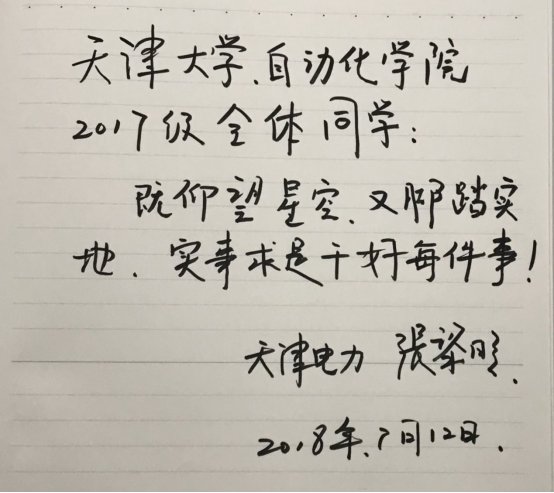 天津大学、自动化学院
2017级全体同学：
既仰望星空、又脚踏实
地、实事求是干好每件事！
天津电力 张梁明、
2018年、7月12日.